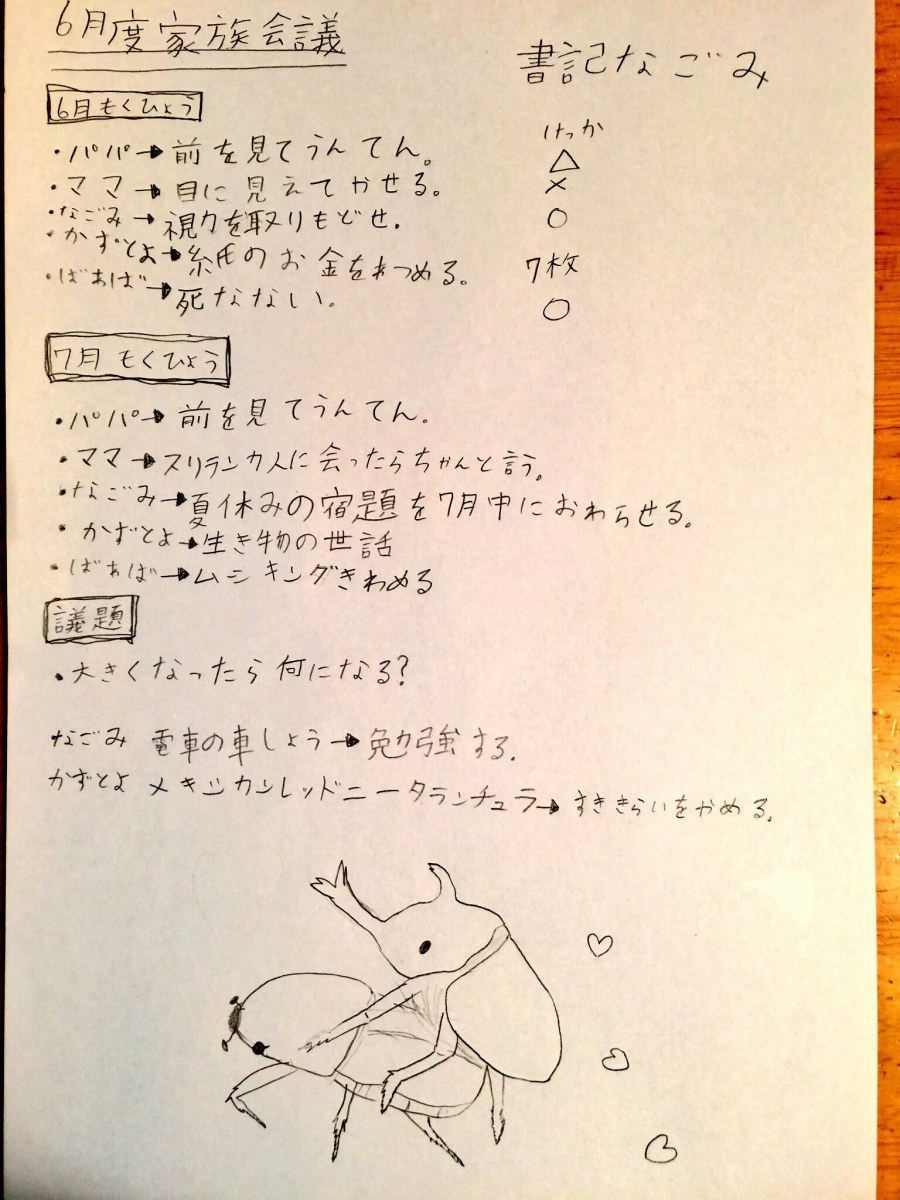 6月度家族会議
書記なごみ
6月もくひょう
けっか
・パパ→前を見てうんてん。 △
・ママ→目に見えてやせる。 ×
・なごみ→視力を取りもどせ. ○
・かずとよ→紙のお金をあつめる。 7枚
・ばぁば→死なない。 ○
7月もくひょう
・パパ→前を見てうんてん.
・ママ→スリランカ人に会ったらちゃんと言う。
・なごみ→夏休みの宿題を7月中におわらせる。
・かずとよ→生き物の世話
・ばぁば→ムシキングきわめる
議題
・大きくなったら何になる?
なごみ 電車の車しょう→勉強する.
かずとよ メキシカンレッドニータランチュラ→すききらいをやめる.